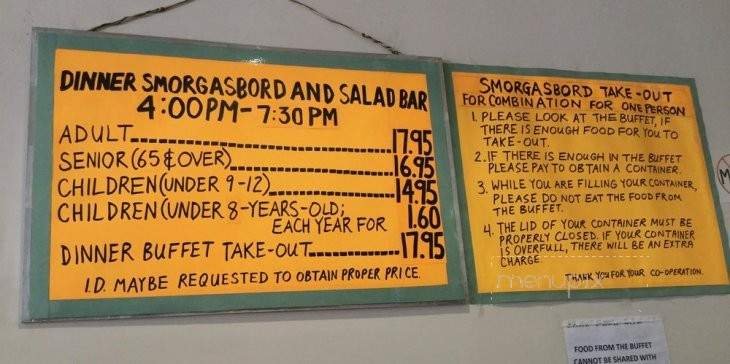 DINNER SMORGASBORD AND SALAD BAR
4:00PM-7:30 PM
ADULT 17.95
SENIOR (65 & OVER) 16.95
CHILDREN (UNDER 9-12) 14.95
CHILDREN (UNDER 8-YEARS-OLD;
EACH YEAR FOR 1.60
DINNER BUFFET TAKE-OUT 17.95
I.D. MAYBE REQUESTED TO OBTAIN PROPER PRICE.
SMORGASBORD TAKE-OUT
FOR COMBINATION FOR ONE PERSON
1. PLEASE LOOK AT THE BUFFET, IF
THERE IS ENOUGH FOOD FOR YOU TO
TAKE-OUT.
2. IF THERE IS ENOUGH IN THE BUFFET
PLEASE PAY TO OBTAIN A CONTAINER.
3. WHILE YOU ARE FILLING YOUR CONTAINER,
PLEASE DO NOT EAT THE FOOD FROM
THE BUFFET.
4. THE LID OF YOUR CONTAINER MUST BE
PROPERLY CLOSED. IF YOUR CONTAINER
IS OVERFULL, THERE WILL BE AN EXTRA
CHARGE.
THANK YOU FOR YOUR CO-OPERATION.
menupix
FOOD FROM THE BUFFET
CANNOT BE SHARED WITH